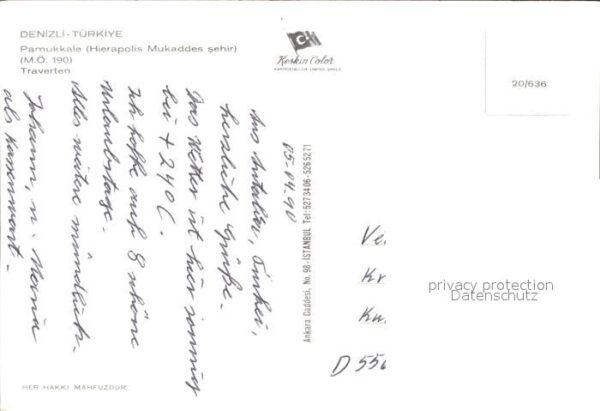 DENİZLİ-TÜRKİYE
Pamukkale (Hierapolis Mukaddes şehir)
(M.Ö. 190)
Traverten
Keskin Color
20/636
05.04.90
Aus Antalia, Türkei,
herzliche Grüße.
Das Wetter ist hier sonnig
bei +24°C.
Ich hoffe auf 8 schöne
Urlaubstage.
Alles weitere mündlich.
Johann, u. Maria
als Kassenwart.
Ankara Caddesi, No. 98-İSTANBUL Tel: 5273406-5265271
Ve
Kr
Ku
D 556
privacy protection
Datenschutz
HER HAKKI MAHFUZDUR